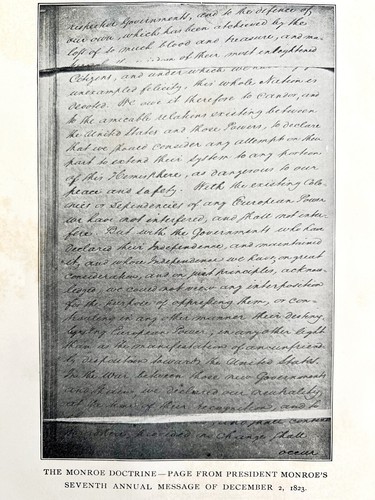 respective Governments, and to the defence of
our own, which has been atchieved by the
loss of so much blood and treasure, and ma-
of their most enlightened
Citizens, and under which we
unexampled felicity, this whole Nation is
devoted. We owe it therefore to candor, and
to the amicable relations existing between
the United States and those Powers, to declare
that we should consider any attempt on their
part to extend their system to any portion
of this Hemisphere, as dangerous to our
peace and safety. With the existing Colo-
nies or dependencies of any European Power
we have not interfered, and shall not inter-
fere. But with the Governments who have
declared their Independence, and maintained
it, and whose Independence we have, on great
consideration, and on just principles, acknow-
ledged, we could not view any interposition
for the purpose of oppressing them, or con-
trouling in any other manner their destiny
by any European Power, in any other light
than as the manifestation of an unfriendly
disposition towards the United States.
In the war between those new Governments
and Spain, we declared our neutrality
at the time of their and to
shall continue
provided no change shall
occur
THE MONROE DOCTRINE—PAGE FROM PRESIDENT MONROE'S
SEVENTH ANNUAL MESSAGE OF DECEMBER 2, 1823.